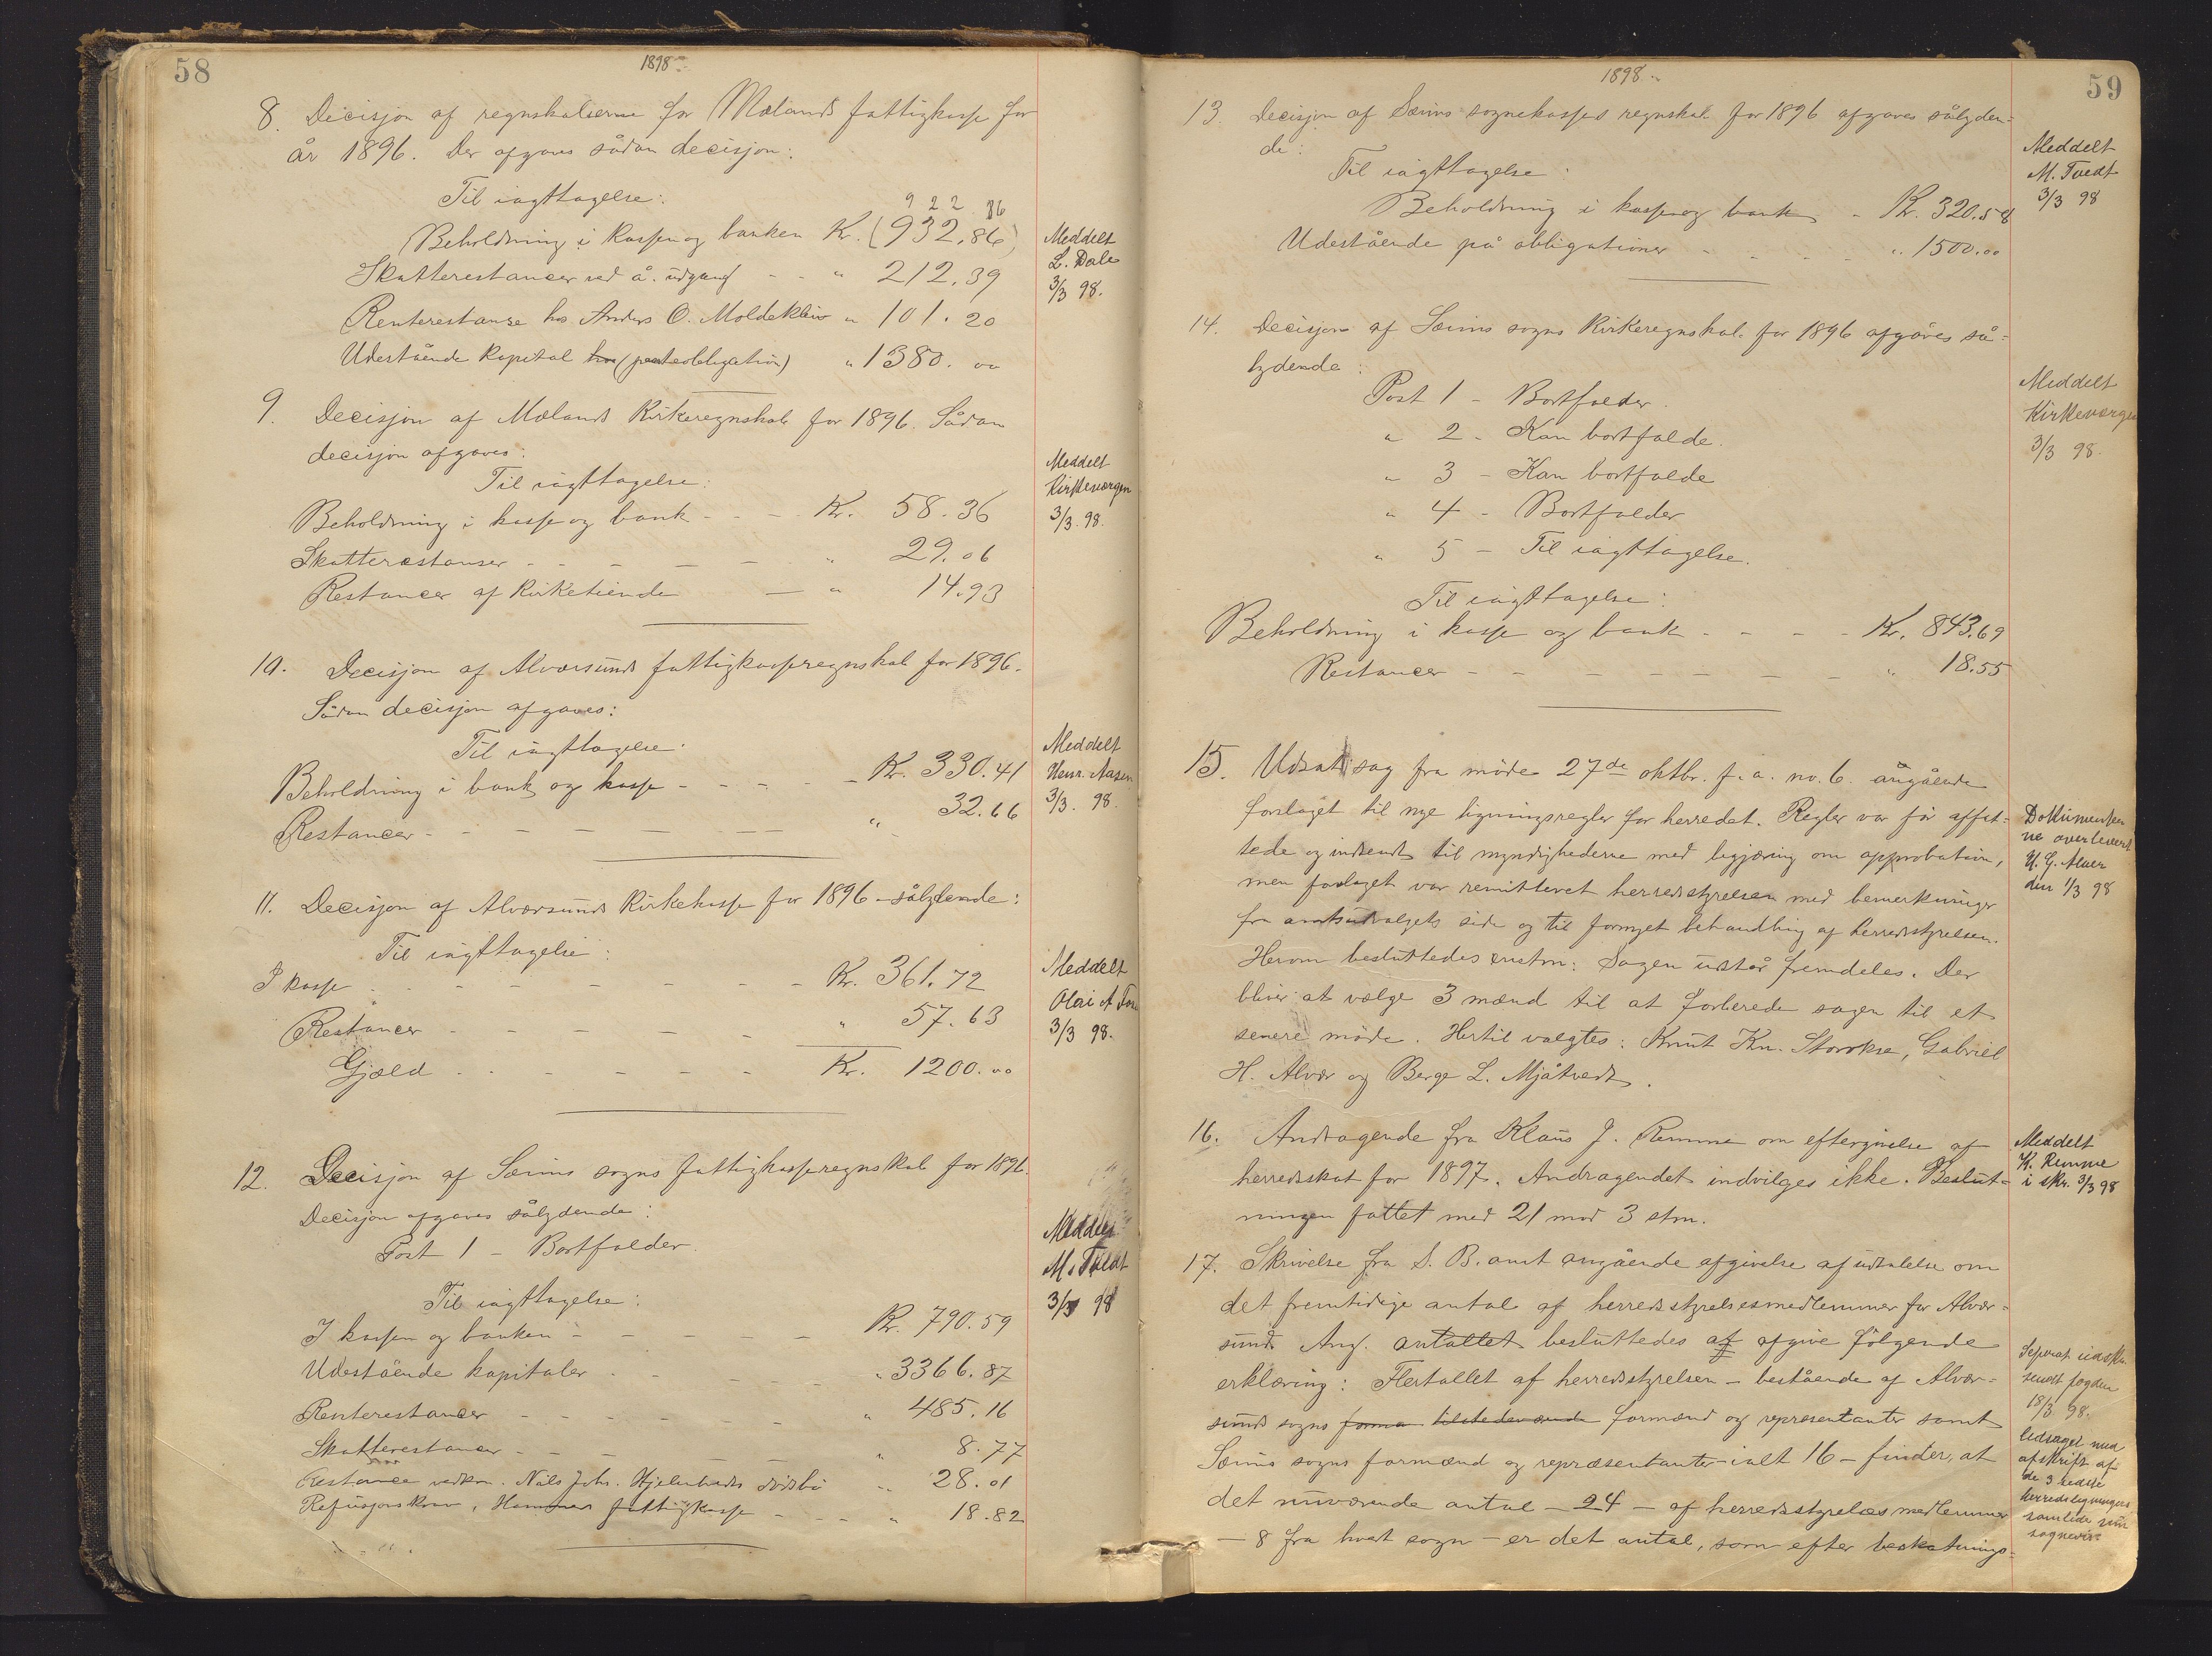 58
1898
8. Decisjon af regnskaberne for Mælands fattigkasse for
år 1896. Der afgaves sådan decisjon:
Til iagttagelse:
922 86
Beholdning i kassen og banken Kr. (932,86)
Skatterestancer ved å. udgang - - " 212.39
Renterestanse hos Anders O. Moldekleiv " 101.20
Udestående kapital hos (panteobligation) " 1380.00
Meddelt
L. Dale
3/3 98.
9. Decisjon af Mælands kirkeregnskab for 1896. Sådan
decisjon afgaves:
Til iagttagelse:
Beholdning i kasse og bank - - - Kr. 58.36
Skatterestanser - - - - - " 29.06
Restancer af kirketiende - " 14.93
Meddelt
Kirkeværgen
3/3. 98.
10. Decisjon af Alværsunds fattigkasseregnskab for 1896.
Sådan decisjon afgaves:
Til iagttagelse:
Beholdning i bank og kasse - - - - Kr. 330.41
Restancer - - - - - - - " 32.66
Meddelt
Henr. Aasen
3/3. 98.
11. Decisjon af Alværsunds kirkekasse for 1896 - sålydende:
Til iagttagelse:
I kasse - - - - - - - - Kr. 361.72
Restancer - - - - - - " 57.63
Gjæld - - - - - - Kr. 1200.00
Meddelt
Olai A
3/3 98.
12. Decisjon af Sæims sogns fattigkasseregnskab for 1896.
Decisjon afgaves sålydende:
Post 1 - Bortfalder.
Til iagttagelse:
I kassen og banken - - - - - Kr. 790.59
Udestående kapitaler - - - - - " 3366.87
Renterestancer - - - - - - - " 485.16
Skatterestancer - - - - - " 8.77
Restance vedkom. Nils Johs. Hjelmtveds dødsbo " 28.01
Refusjonskrav, Hammers fattigkasse - - - " 18.82
Meddelt
M. Tvedt
3/3 98
59
1898
13. Decisjon af Sæims sognekasses regnskab for 1896 afgaves sålyden-
de:
Til iagttagelse:
Beholdning i kasse og bank - Kr. 320.58
Udestående på obligationer - - - - - " 1500.00
Meddelt
M. Tvedt
3/3 98
14. Decisjon af Sæims sogns kirkeregnskab for 1896 afgaves så-
lydende:
Post 1 - Bortfalder.
" 2 - Kan bortfalde.
" 3 - Kan bortfalde
" 4 - Bortfalder
" 5 - Til iagttagelse.
Til iagttagelse:
Beholdning i kasse og bank - - - - Kr. 843.69
Restancer - - - - - - - - " 18.55
Meddelt
Kirkeværgen
3/3 98.
15. Udsat sag fra møde 27de oktbr. f.a. no. 6. angående
forslaget til nye ligningsregler for herredet. Regler var før affat-
tede og indsendt til myndighederne med begjæring om approbation,
men forslaget var remitteret herredsstyrelsen med bemerkninger
fra amtsudvalgets side og til fornyet behandling af herredsstyrelsen.
Herom besluttedes enstm: Sagen udstår fremdeles. Der
bliver at vælge 3 mænd til at forberede sagen til et
senere møde. Hertil valgtes: Knut Kn. Storokse, Gabriel
H. Alvær og Berge L. Mjåtvedt.
Dokumenter-
ne overleveret
H. G. Alvær
den 1/3 98
16. Andragende fra Klaus J. Remme om eftergivelse af
herredsskat for 1897. Andragendet indvilges ikke. Beslut-
ningen fattet med 21 mod 3 stm.
Meddelt
K. Remme
i skr. 3/3 98
17. Skrivelse fra S. B. amt angående afgivelse af udtalelse om
det fremtidige antal af herredsstyrelsesmedlemmer for Alvær-
sund. Ang. antallet besluttedes at afgive følgende
erklæring: Flertallet af herredsstyrelsen - bestående af Alvær-
sunds sogns forma tilstedeværende formænd og representanter samt
Sæims sogns formænd og repræsentanter - ialt 16 - finder, at
det nuværende antal - 24 - af herredsstyrelsesmedlemmer
- 8 fra hvert sogn - er det antal, som efter beskatnings-
Seperat udskr.
sendt fogden
18/3 98.
ledsaget med
afskrift af
de 3 sedste
herredsligningers
samlede sum
sognevis